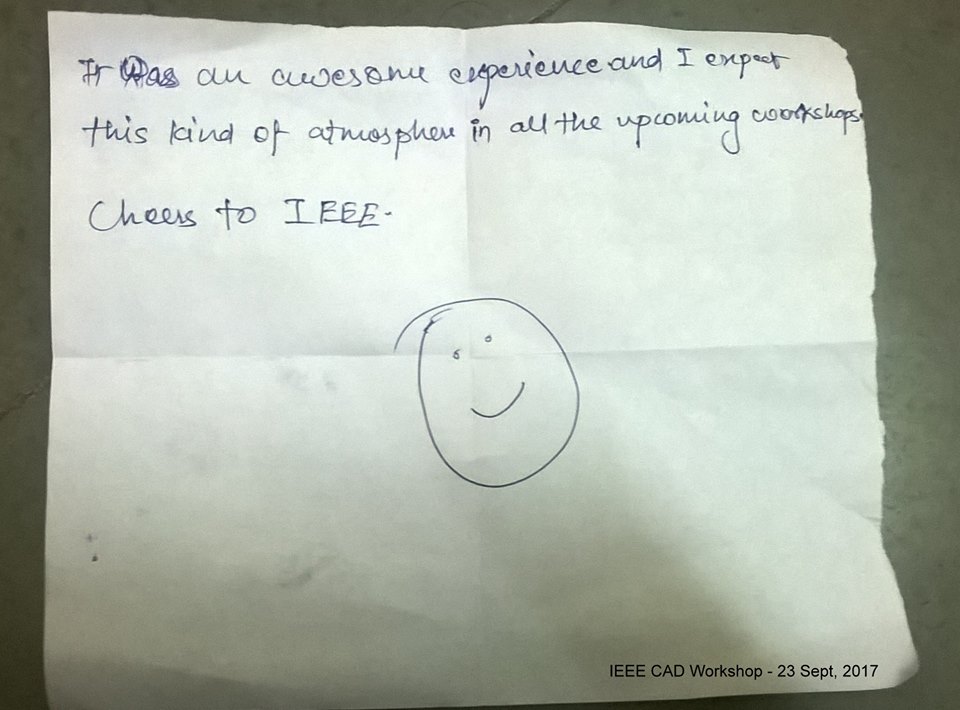 It was an awesome experience and I expect
this kind of atmosphere in all the upcoming workshops.
Cheers to IEEE.
IEEE CAD Workshop - 23 Sept, 2017